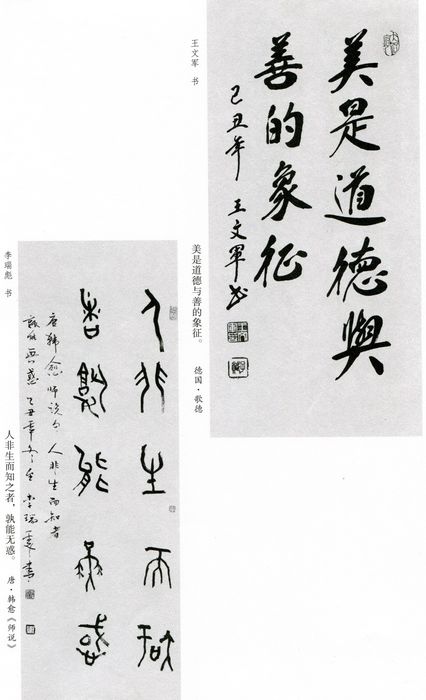 王文军 书
美是道德與
善的象征
己丑年 王文軍书
美是道德与善的象征。
德国·歌德
李瑞彪 书
人非生而知
者孰能無惑
唐韩愈师说句 人非生而知者
孰能無惑
人非生而知之者，孰能无惑。
唐·韩愈《师说》